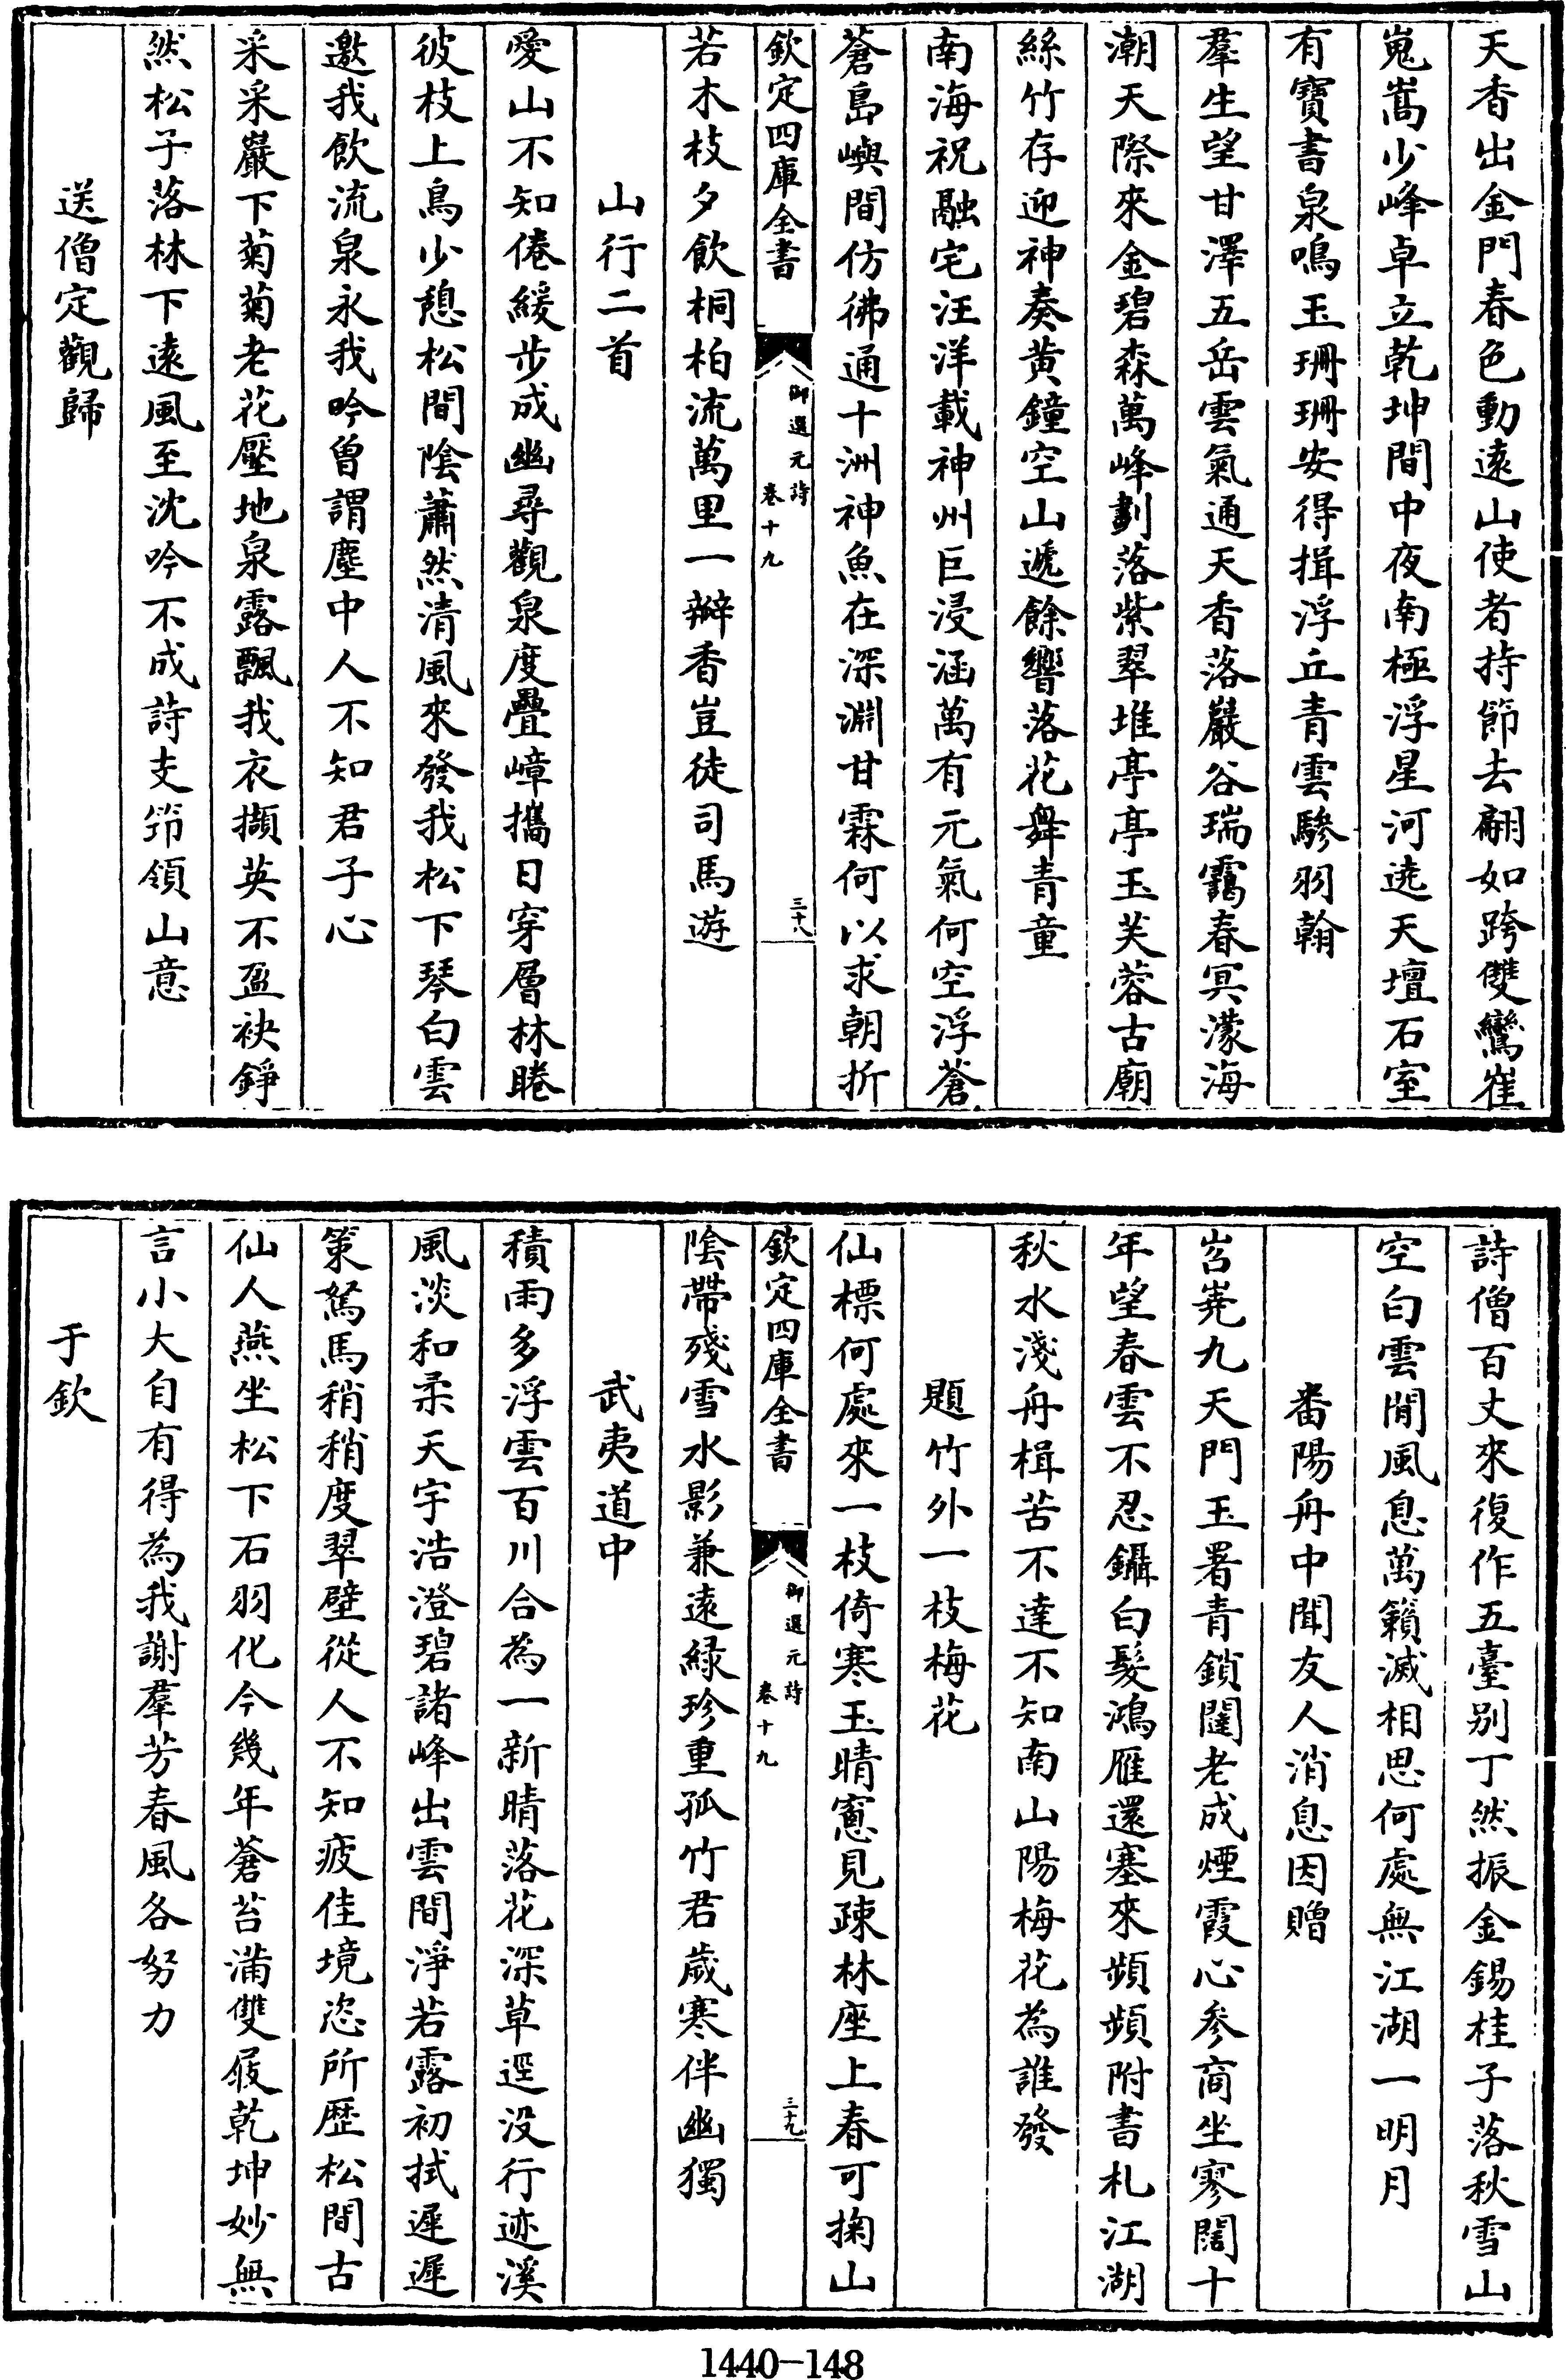 天香出金門春色動遠山使者持節去翩如跨雙鸞崔
嵬嵩少峰卓立乾坤間中夜南極浮星河遶天壇石室
有寶書泉鳴玉珊珊安得揖浮丘青雲驂羽翰
羣生望甘澤五岳雲氣通天香落巖谷瑞靄春冥濛海
潮天際來金碧森萬峰劃落紫翠堆亭亭玉芙蓉古廟
絲竹存迎神奏黃鐘空山遞餘響落花舞青童
南海祝融宅汪洋載神州巨浸涵萬有元氣何空浮蒼
蒼島嶼間仿彿通十洲神魚在深淵甘霖何以求朝折
欽定四庫全書
御選元詩
卷十九
三十八
若木枝夕飲桐柏流萬里一瓣香豈徒司馬遊
山行二首
愛山不知倦緩步成幽尋觀泉度疊嶂攜日穿層林睠
彼枝上鳥少憩松間陰蕭然清風來發我松下琴白雲
邀我飲流泉永我吟曾謂塵中人不知君子心
采采巖下菊菊老花壓地泉露飄我衣擷英不盈袂錚
然松子落林下遠風至沈吟不成詩支笻領山意
送僧定觀歸
詩僧百丈來復作五臺別丁然振金錫桂子落秋雪山
空白雲閒風息萬籟滅相思何處無江湖一明月
番陽舟中聞友人消息因贈
岧嶤九天門玉署青鎖闥老成煙霞心參商坐寥闊十
年望春雲不忍鑷白髮鴻雁還塞來頻頻附書札江湖
秋水淺舟楫苦不達不知南山陽梅花為誰發
題竹外一枝梅花
仙標何處來一枝倚寒玉晴窻見疎林座上春可掬山
欽定四庫全書
御選元詩
卷十九
三十九
陰帶殘雪水影兼遠綠珍重孤竹君歲寒伴幽獨
武夷道中
積雨多浮雲百川合為一新晴落花深草逕没行迹溪
風淡和柔天宇浩澄碧諸峰出雲間淨若露初拭遲遲
策駑馬稍稍度翠壁從人不知疲佳境恣所歷松間古
仙人燕坐松下石羽化今幾年蒼苔滿雙屐乾坤妙無
言小大自有得為我謝羣芳春風各努力
于欽
1440-148